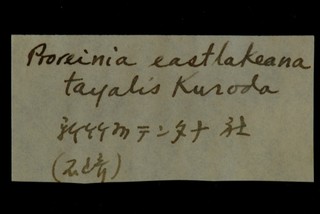 Proreinia eastlakeana
tayalis Kuroda
新竹州テンタナ社